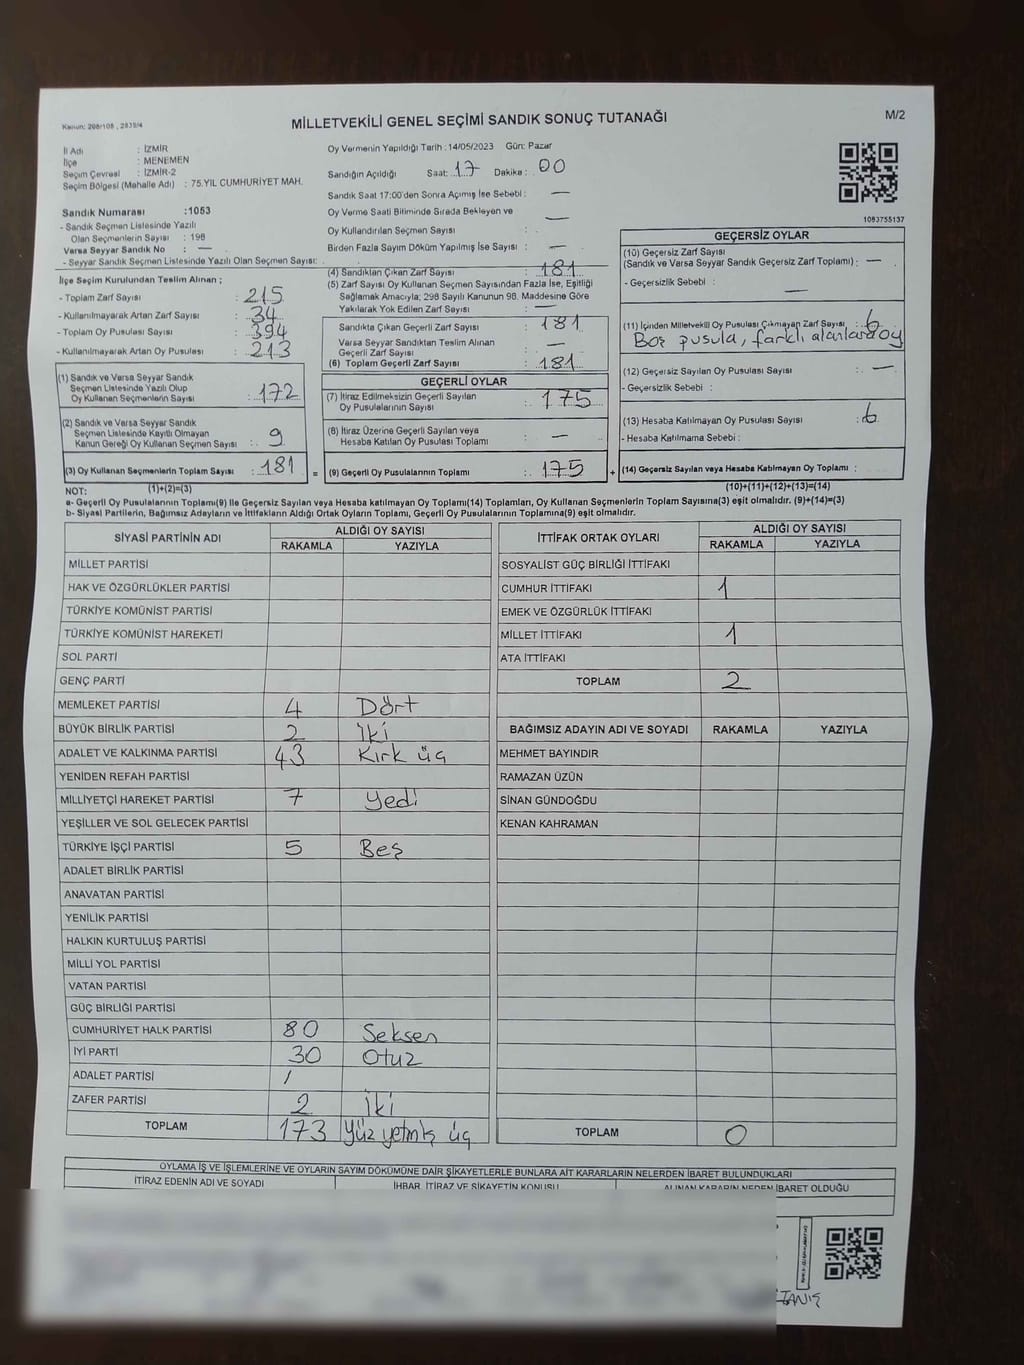 Kanun: 298/108 , 2839/4
MİLLETVEKİLİ GENEL SEÇİMİ SANDIK SONUÇ TUTANAĞI
M/2
İl Adı : İZMİR
İlçe : MENEMEN
Seçim Çevresi : İZMİR-2
Seçim Bölgesi (Mahalle Adı) : 75.YIL CUMHURİYET MAH.
Sandık Numarası :1053
- Sandık Seçmen Listesinde Yazılı
Olan Seçmenlerin Sayısı : 198
Varsa Seyyar Sandık No : —
- Seyyar Sandık Seçmen Listesinde Yazılı Olan Seçmen Sayısı:
Oy Vermenin Yapıldığı Tarih :14/05/2023 Gün: Pazar
Sandığın Açıldığı Saat: 17 Dakika: 00
Sandık Saat 17:00'den Sonra Açımış İse Sebebi : —
Oy Verme Saati Bitiminde Sırada Bekleyen ve
Oy Kullandırılan Seçmen Sayısı : —
Birden Fazla Sayım Döküm Yapılmış İse Sayısı : —
1083755137
İlçe Seçim Kurulundan Teslim Alınan ;
- Toplam Zarf Sayısı : 215
- Kullanılmayarak Artan Zarf Sayısı : 34
- Toplam Oy Pusulası Sayısı : 394
- Kullanılmayarak Artan Oy Pusulası : 213
(1) Sandık ve Varsa Seyyar Sandık
Seçmen Listesinde Yazılı Olup
Oy Kullanan Seçmenlerin Sayısı : 172
(2) Sandık ve Varsa Seyyar Sandık
Seçmen Listesinde Kayıtlı Olmayan
Kanun Gereği Oy Kullanan Seçmen Sayısı : 9
(3) Oy Kullanan Seçmenlerin Toplam Sayısı : 181
(1)+(2)=(3)
(4) Sandıktan Çıkan Zarf Sayısı : 181
(5) Zarf Sayısı Oy Kullanan Seçmen Sayısından Fazla İse, Eşitliği
Sağlamak Amacıyla; 298 Sayılı Kanunun 98. Maddesine Göre
Yakılarak Yok Edilen Zarf Sayısı : —
Sandıkta Çıkan Geçerli Zarf Sayısı : 181
Varsa Seyyar Sandıktan Teslim Alınan
Geçerli Zarf Sayısı : —
(6) Toplam Geçerli Zarf Sayısı : 181
GEÇERLİ OYLAR
(7) İtiraz Edilmeksizin Geçerli Sayılan
Oy Pusulalarının Sayısı : 175
(8) İtiraz Üzerine Geçerli Sayılan veya
Hesaba Katılan Oy Pusulası Toplamı : —
= (9) Geçerli Oy Pusulalarının Toplamı : 175
GEÇERSİZ OYLAR
(10) Geçersiz Zarf Sayısı
(Sandık ve Varsa Seyyar Sandık Geçersiz Zarf Toplamı) : —
- Geçersizlik Sebebi : —
(11) İçinden Milletvekili Oy Pusulası Çıkmayan Zarf Sayısı : 6
Boş pusula, farklı alanlara oy
(12) Geçersiz Sayılan Oy Pusulası Sayısı : —
- Geçersizlik Sebebi :
(13) Hesaba Katılmayan Oy Pusulası Sayısı : 6
- Hesaba Katılmama Sebebi :
+ (14) Geçersiz Sayılan veya Hesaba Katılmayan Oy Toplamı :
(10)+(11)+(12)+(13)=(14)
NOT:
a- Geçerli Oy Pusulalarının Toplamı(9) İle Geçersiz Sayılan veya Hesaba katılmayan Oy Toplamı(14) Toplamları, Oy Kullanan Seçmenlerin Toplam Sayısına(3) eşit olmalıdır. (9)+(14)=(3)
b- Siyasi Partilerin, Bağımsız Adayların ve İttifakların Aldığı Ortak Oyların Toplamı, Geçerli Oy Pusulalarının Toplamına(9) eşit olmalıdır.
SİYASİ PARTİNİN ADI ALDIĞI OY SAYISI
RAKAMLA YAZIYLA
MİLLET PARTİSİ
HAK VE ÖZGÜRLÜKLER PARTİSİ
TÜRKİYE KOMÜNİST PARTİSİ
TÜRKİYE KOMÜNİST HAREKETİ
SOL PARTİ
GENÇ PARTİ
MEMLEKET PARTİSİ 4 Dört
BÜYÜK BİRLİK PARTİSİ 2 İki
ADALET VE KALKINMA PARTİSİ 43 Kırk üç
YENİDEN REFAH PARTİSİ
MİLLİYETÇİ HAREKET PARTİSİ 7 Yedi
YEŞİLLER VE SOL GELECEK PARTİSİ
TÜRKİYE İŞÇİ PARTİSİ 5 Beş
ADALET BİRLİK PARTİSİ
ANAVATAN PARTİSİ
YENİLİK PARTİSİ
HALKIN KURTULUŞ PARTİSİ
MİLLİ YOL PARTİSİ
VATAN PARTİSİ
GÜÇ BİRLİĞİ PARTİSİ
CUMHURİYET HALK PARTİSİ 80 Seksen
İYİ PARTİ 30 Otuz
ADALET PARTİSİ /
ZAFER PARTİSİ 2 İki
TOPLAM 173 Yüz yetmiş üç
İTTİFAK ORTAK OYLARI ALDIĞI OY SAYISI
RAKAMLA YAZIYLA
SOSYALİST GÜÇ BİRLİĞİ İTTİFAKI
CUMHUR İTTİFAKI 1
EMEK VE ÖZGÜRLÜK İTTİFAKI
MİLLET İTTİFAKI 1
ATA İTTİFAKI
TOPLAM 2
BAĞIMSIZ ADAYIN ADI VE SOYADI RAKAMLA YAZIYLA
MEHMET BAYINDIR
RAMAZAN ÜZÜN
SİNAN GÜNDOĞDU
KENAN KAHRAMAN
TOPLAM 0
OYLAMA İŞ VE İŞLEMLERİNE VE OYLARIN SAYIM DÖKÜMÜNE DAİR ŞİKAYETLERLE BUNLARA AİT KARARLARIN NELERDEN İBARET BULUNDUKLARI
İTİRAZ EDENİN ADI VE SOYADI İHBAR, İTİRAZ VE ŞİKAYETİN KONUSU ALINAN KARARIN NEDEN İBARET OLDUĞU